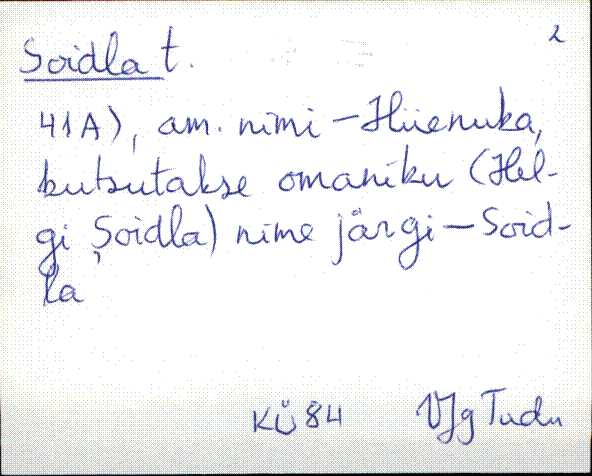 2
Soidla t.
41A), am. nimi - Hiienuka,
kutsutakse omaniku (Hel-
gi Soidla) nime järgi - Soid-
la
KÜ 84 VJg Tudu